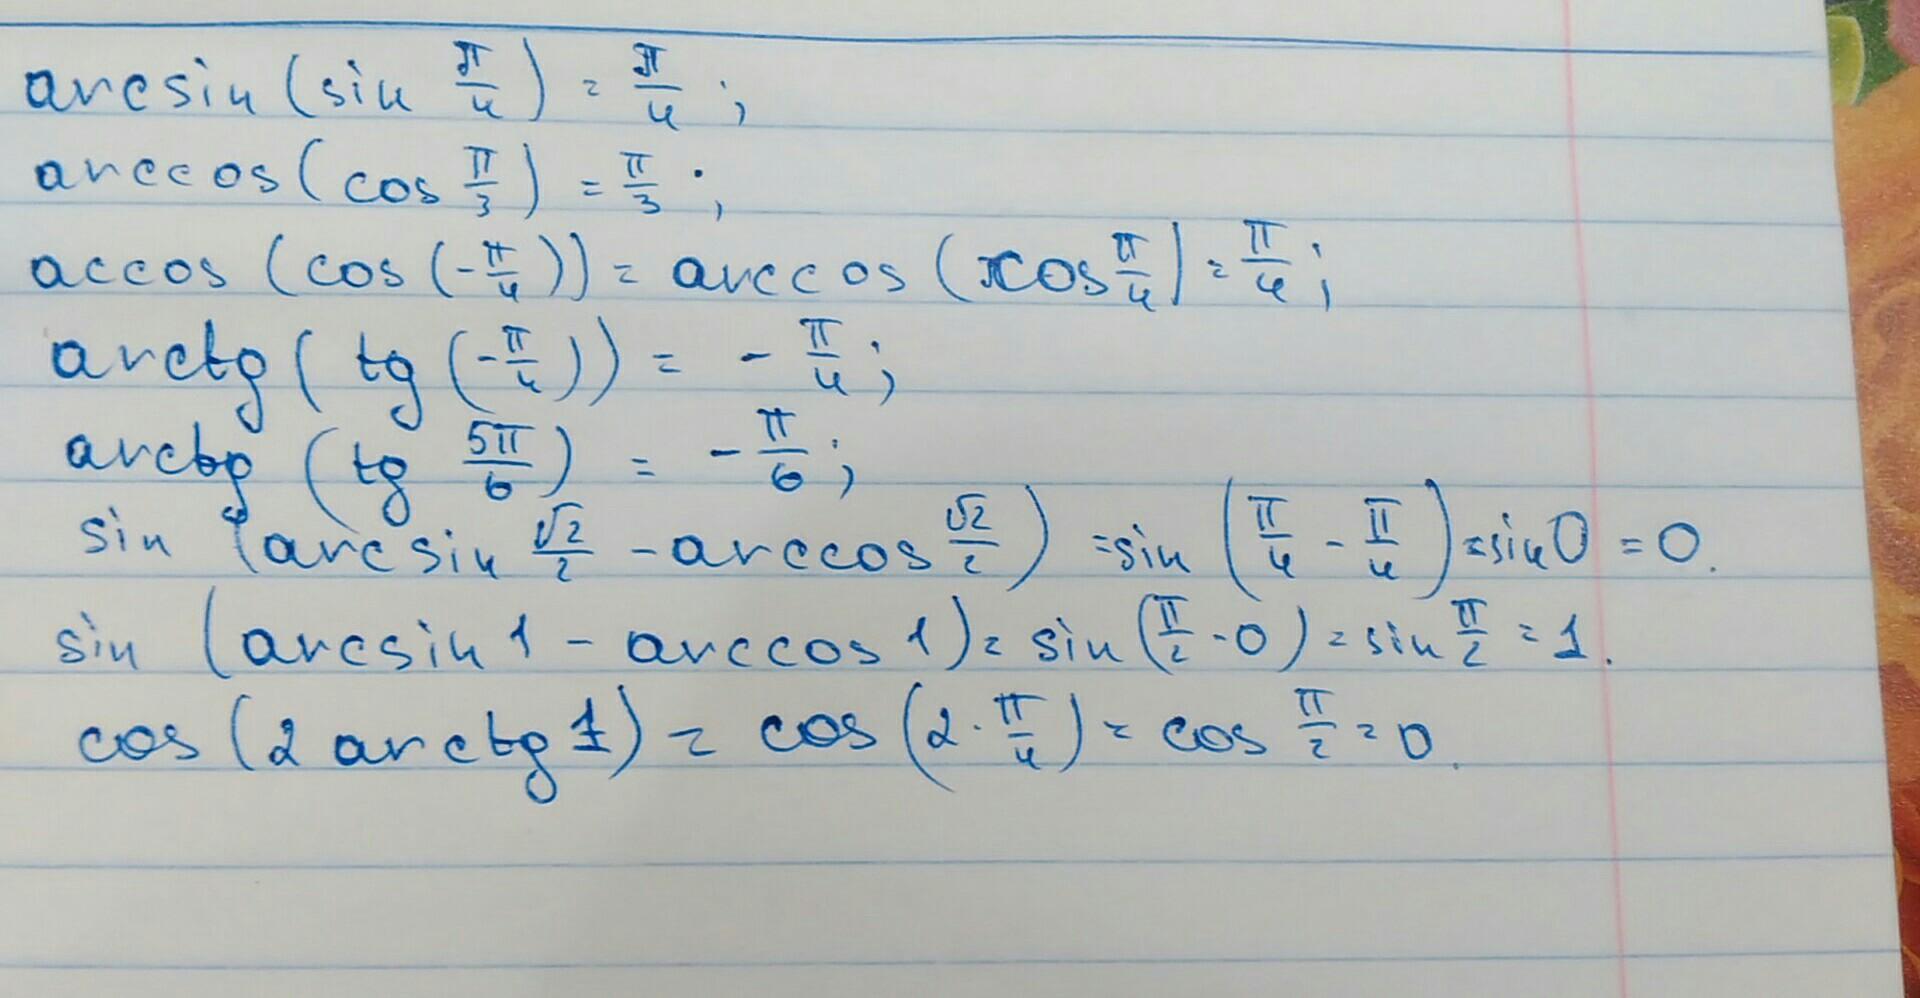 arcsin (sin π/4) = π/4 ;
arccos (cos π/3) = π/3 ;
accos (cos (-π/4)) = arccos (cos π/4) = π/4 ;
arctg (tg (-π/4)) = - π/4 ;
arctg (tg 5π/6) = - π/6 ;
sin (arcsin √2/2 - arccos √2/2) = sin (π/4 - π/4) = sin 0 = 0.
sin (arcsin 1 - arccos 1) = sin (π/2 - 0) = sin π/2 = 1.
cos (2 arctg 1) = cos (2 · π/4) = cos π/2 = 0.